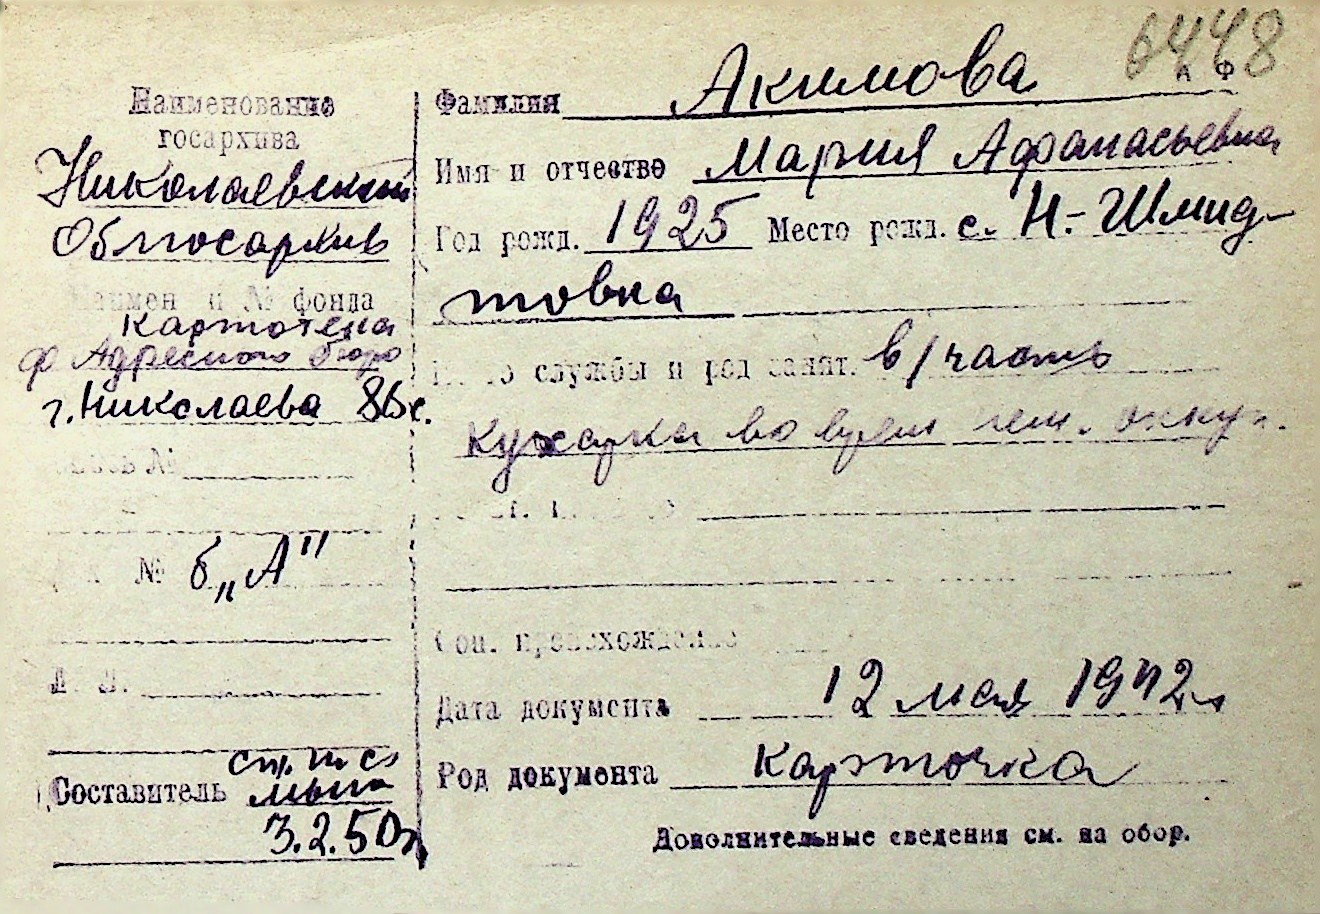 6448
А Ф
Наименование
госархива
Николаевский
Облгосархив
Наимен и № фонда
Картотека
ф Адресного бюро
г. Николаева
№ б „А"
Составитель
3.2.50г
Фамилия Акимова
Имя и отчество Мария Афанасьевна
Год рожд. 1925 Место рожд. с. Н.-Шмид-
товка
службы и род занят. в/часть
Кухарка во врем нем. оккуп.
Соц. происхождение
Дата документа 12 мая 1942г
Род документа Карточка
Дополнительные сведения см. на обор.